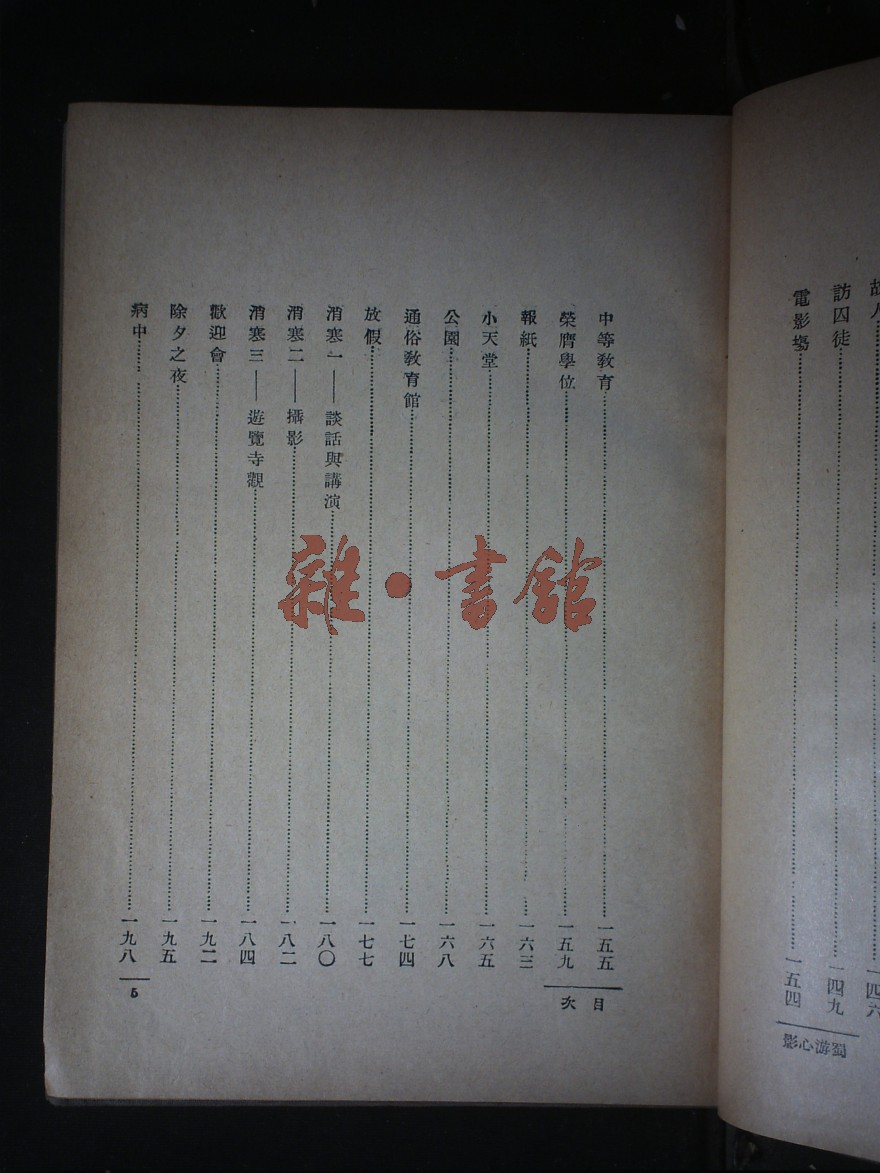 故人……一四六
訪囚徒……一四九
電影場……一五四
蜀游心影
中等教育……一五五
榮膺學位……一五九
報紙……一六三
小天堂……一六五
公園……一六八
通俗教育館……一七四
放假……一七七
消寒一——談話與講演……一八〇
消寒二——攝影……一八二
消寒三——遊覽寺觀……一八四
歡迎會……一九二
除夕之夜……一九五
病中……一九八
目次
5
雜·書館